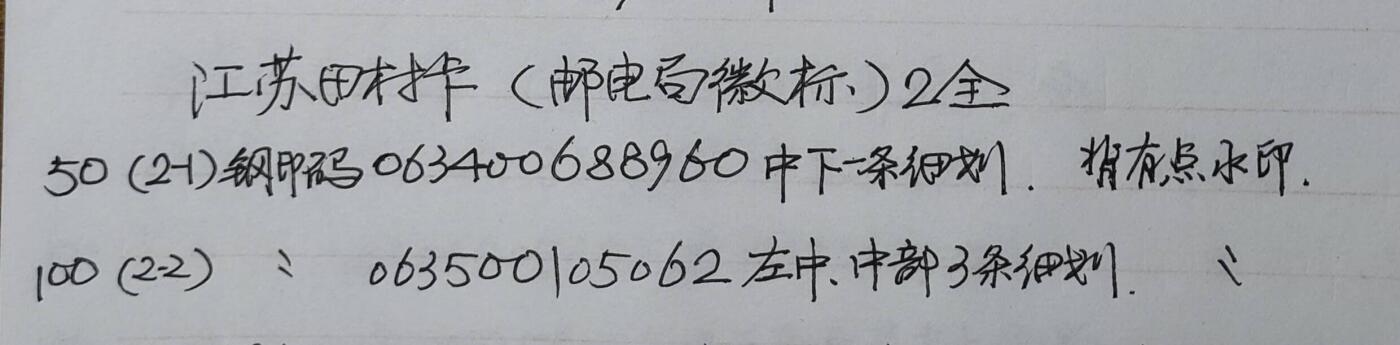 江苏田村卡（邮电局徽标）2全
50（2-1）钢印码063400688960中下一条细划．稍有点水印．
100（2-2）〃 063500105062左中、中部3条细划．〃